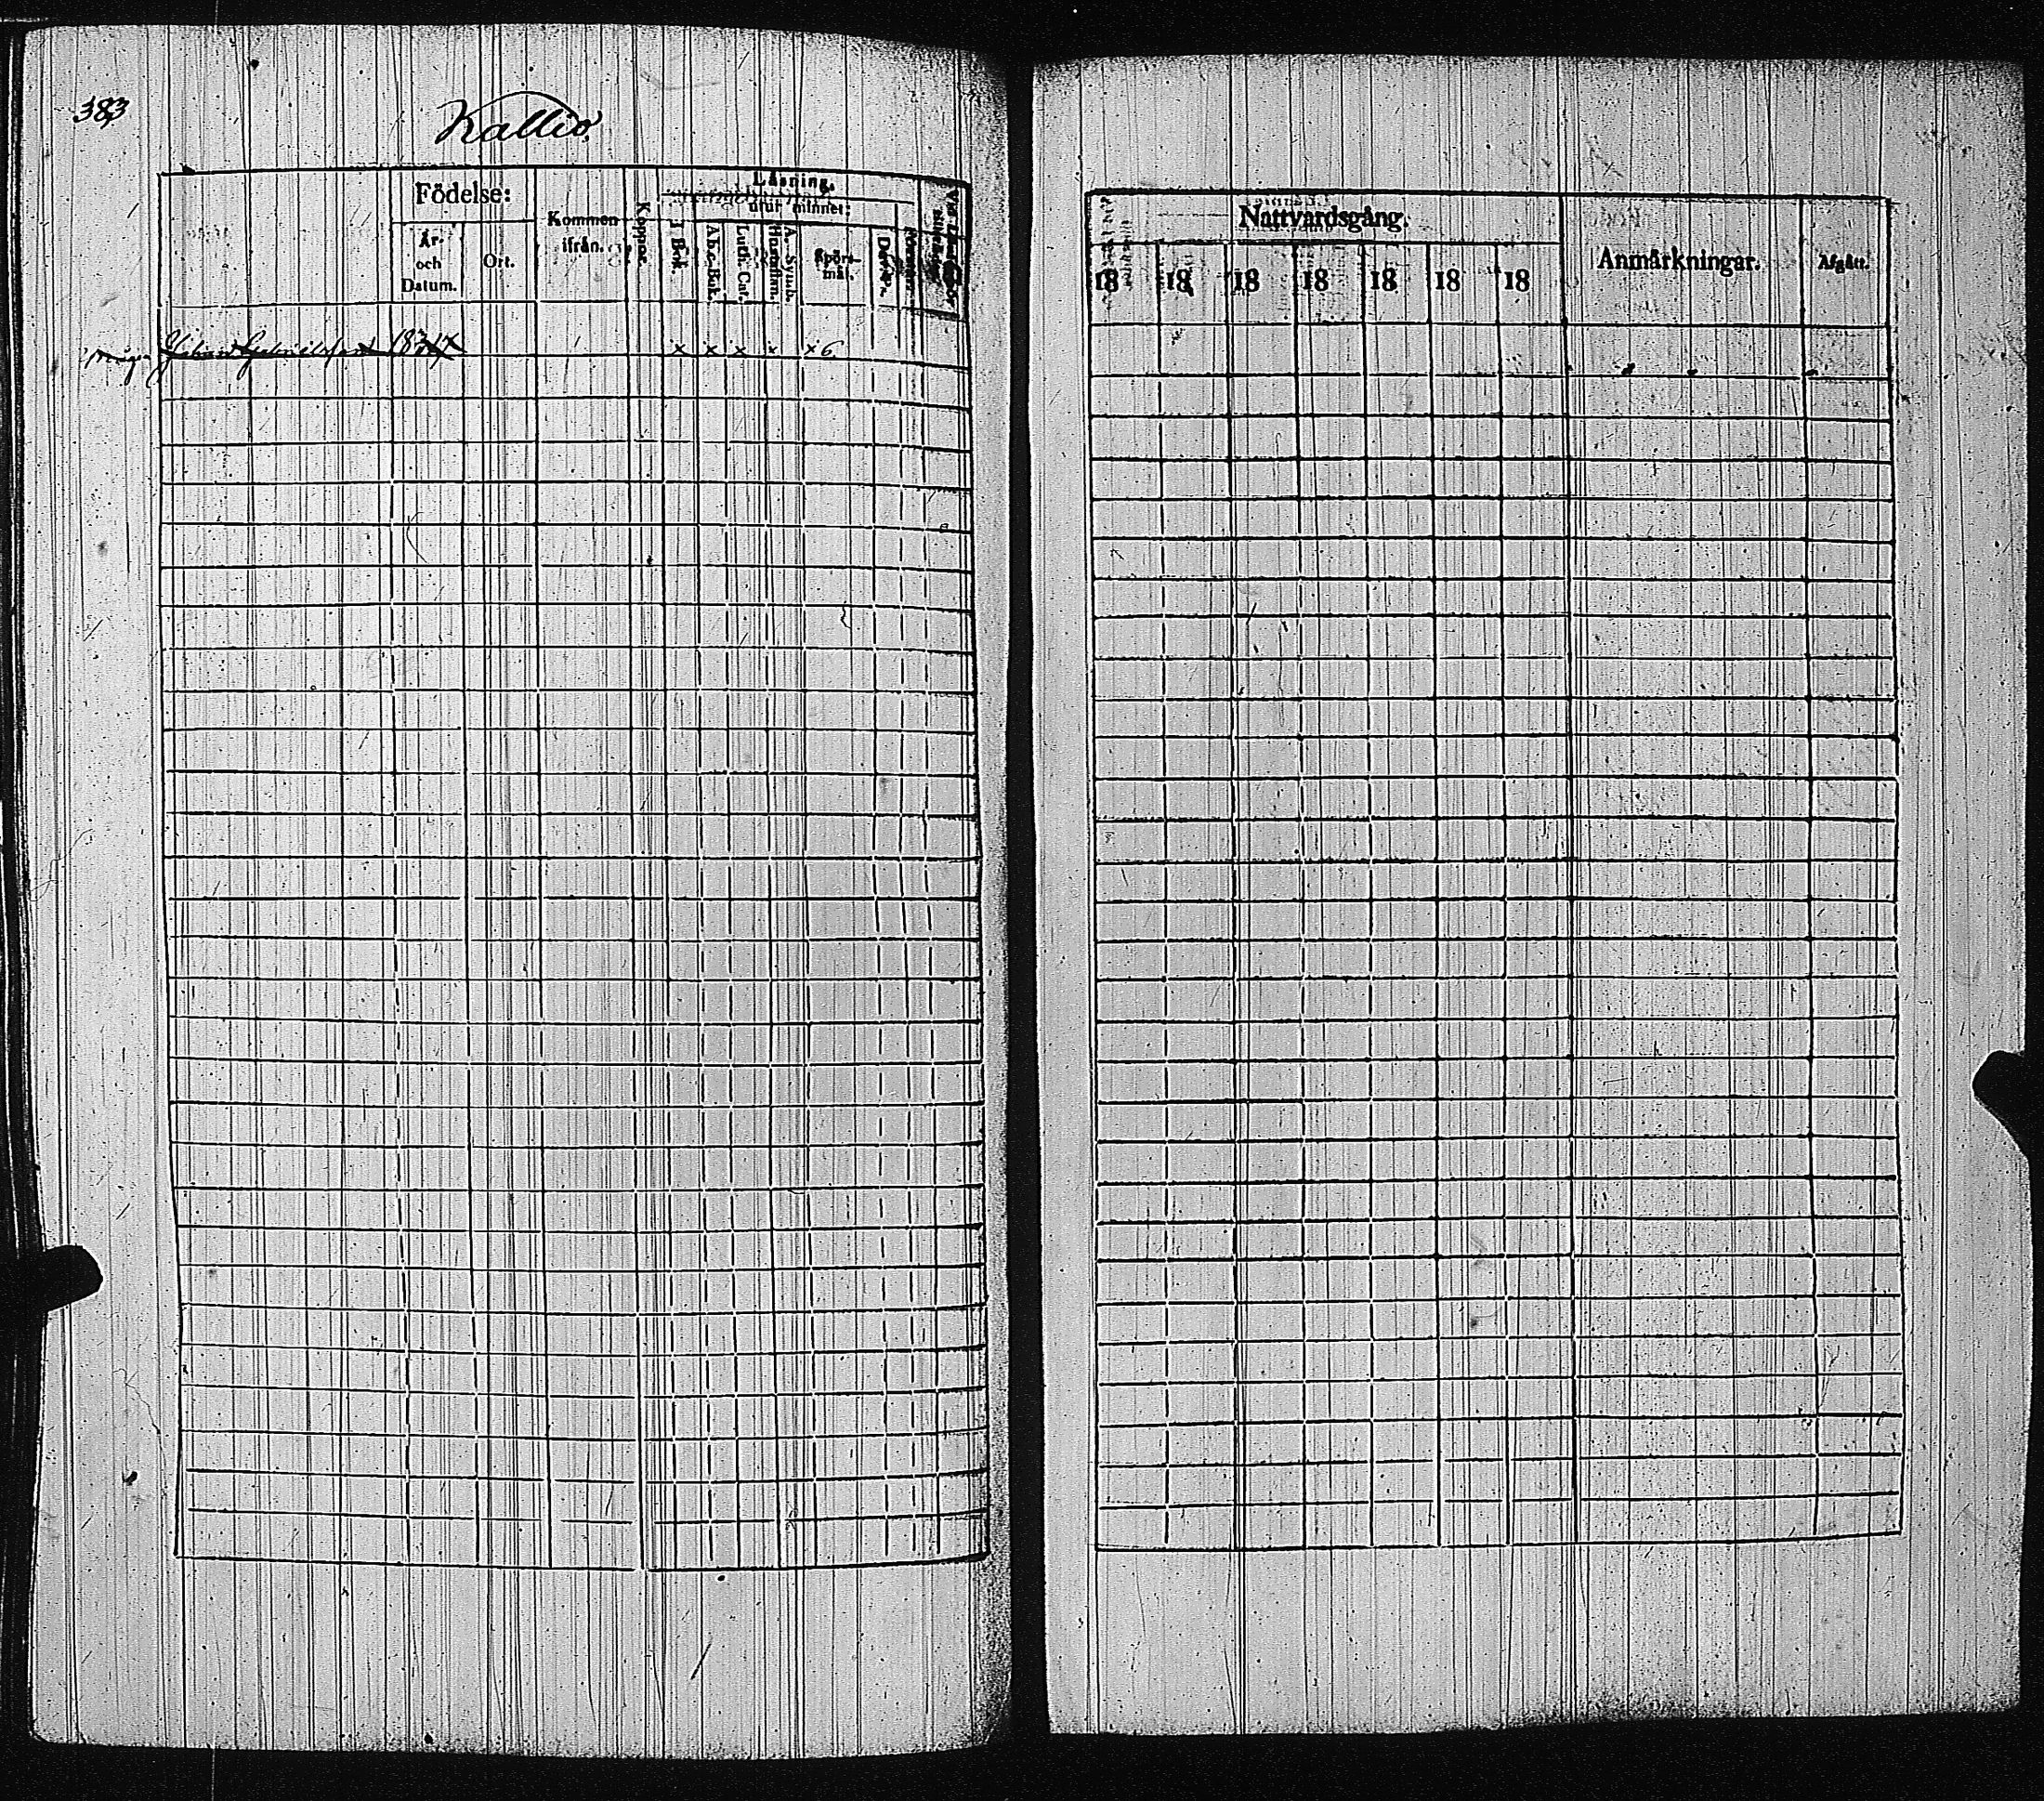 383
Kallio
Födelse:
År- och Datum.
Ort.
Kommen ifrån.
Koppor.
Läsning.
utur minnet:
I Bok.
A.b.c. Bok.
Luth. Cat.
Hustaflan.
A. Symb.
Spörs-mål.
Johan Gabrielsson
x x x x x 6
Nattvardsgång.
18 18 18 18 18 18 18
Anmärkningar.
Afgått.